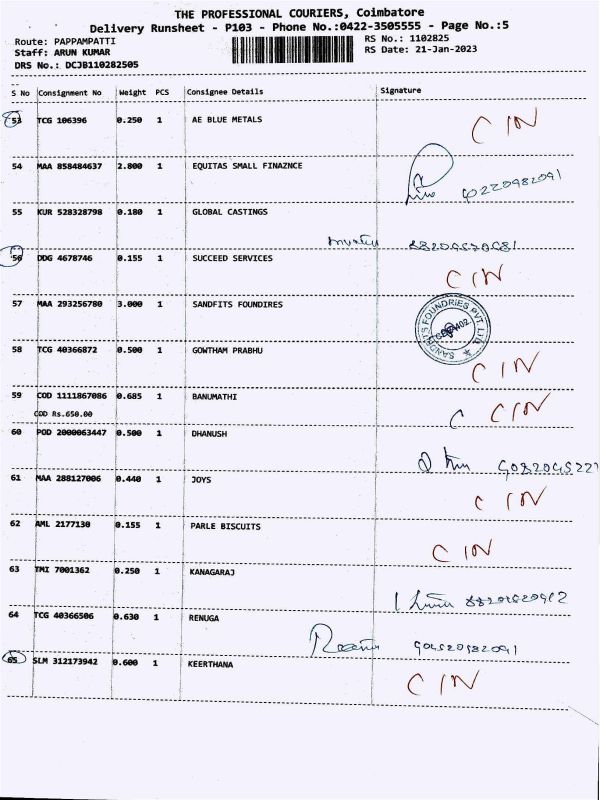 THE PROFESSIONAL COURIERS, Coimbatore
Delivery Runsheet - P103 - Phone No.:0422-3505555 - Page No.:5
Route: PAPPAMPATTI RS No.: 1102825
Staff: ARUN KUMAR RS Date: 21-Jan-2023
DRS No.: DCJB110282505
S No Consignment No Weight PCS Consignee Details Signature
53 TCG 106396 0.250 1 AE BLUE METALS CIN
54 MAA 858484637 2.800 1 EQUITAS SMALL FINAZNCE
55 KUR 528328798 0.180 1 GLOBAL CASTINGS
56 DDG 4678746 0.155 1 SUCCEED SERVICES CIN
57 MAA 293256780 3.000 1 SANDFITS FOUNDIRES SANDFITS FOUNDRIES PVT. LTD
58 TCG 40366872 0.500 1 GOWTHAM PRABHU CIN
59 COD 1111867086 0.685 1 BANUMATHI C CIN
COD Rs.650.00
60 POD 2000063447 0.500 1 DHANUSH
61 MAA 288127006 0.440 1 JOYS CIN
62 AML 2177130 0.155 1 PARLE BISCUITS CIN
63 TMI 7001362 0.250 1 KANAGARAJ
64 TCG 40366506 0.630 1 RENUGA
65 SLM 312173942 0.600 1 KEERTHANA CIN